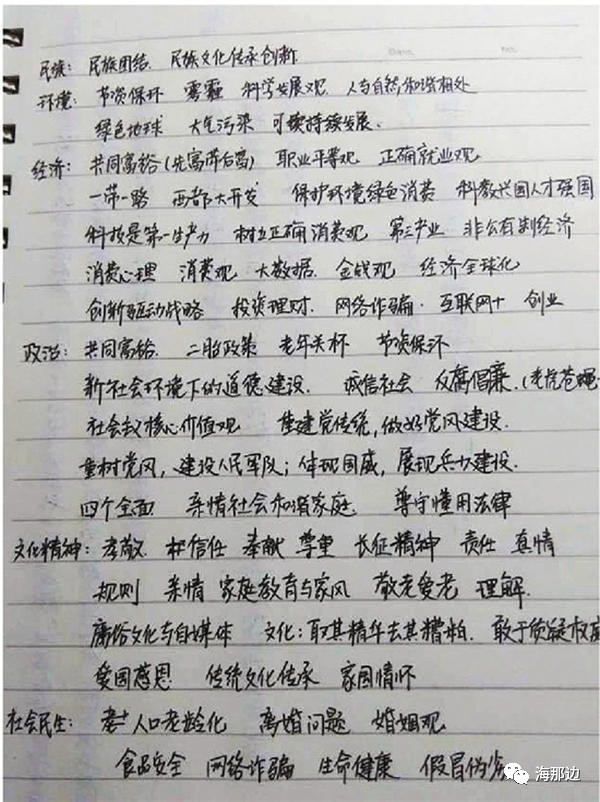 民族: 民族团结 民族文化传承创新
环境: 节资保环 雾霾 科学发展观 人与自然和谐相处
绿色地球 大气污染 可续持续发展.
经济: 共同富裕(先富带后富) 职业平等观 正确就业观
一带一路 西部大开发 保护环境绿色消费 科教兴国人才强国
科技是第一生产力 树立正确消费观 第三产业 非公有制经济
消费心理 消费观 大数据. 金钱观 经济全球化
创新驱动战略 投资理财. 网络诈骗. 互联网+ 创业
政治: 共同富裕. 二胎政策 老年关怀 节资保环
新社会环境下的道德建设. 诚信社会 反腐倡廉.(老虎苍蝇
社会主义核心价值观 重建党传统,做好党风建设.
重树党风,建设人民军队;体现国威,展现兵力建设.
四个全面 亲情社会和谐家庭. 尊守懂用法律
文化精神: 孝敬. 相信任 奉献 尊重 长征精神 责任 真情
规则 亲情 家庭教育与家风 敬老爱老 理解.
庸俗文化与自媒体 文化:取其精华去其糟粕. 敢于质疑权威
爱国感恩 传统文化传承 家国情怀
社会民生: 人口老龄化 离婚问题 婚姻观
食品安全 网络诈骗 生命健康 假冒伪劣
海那边